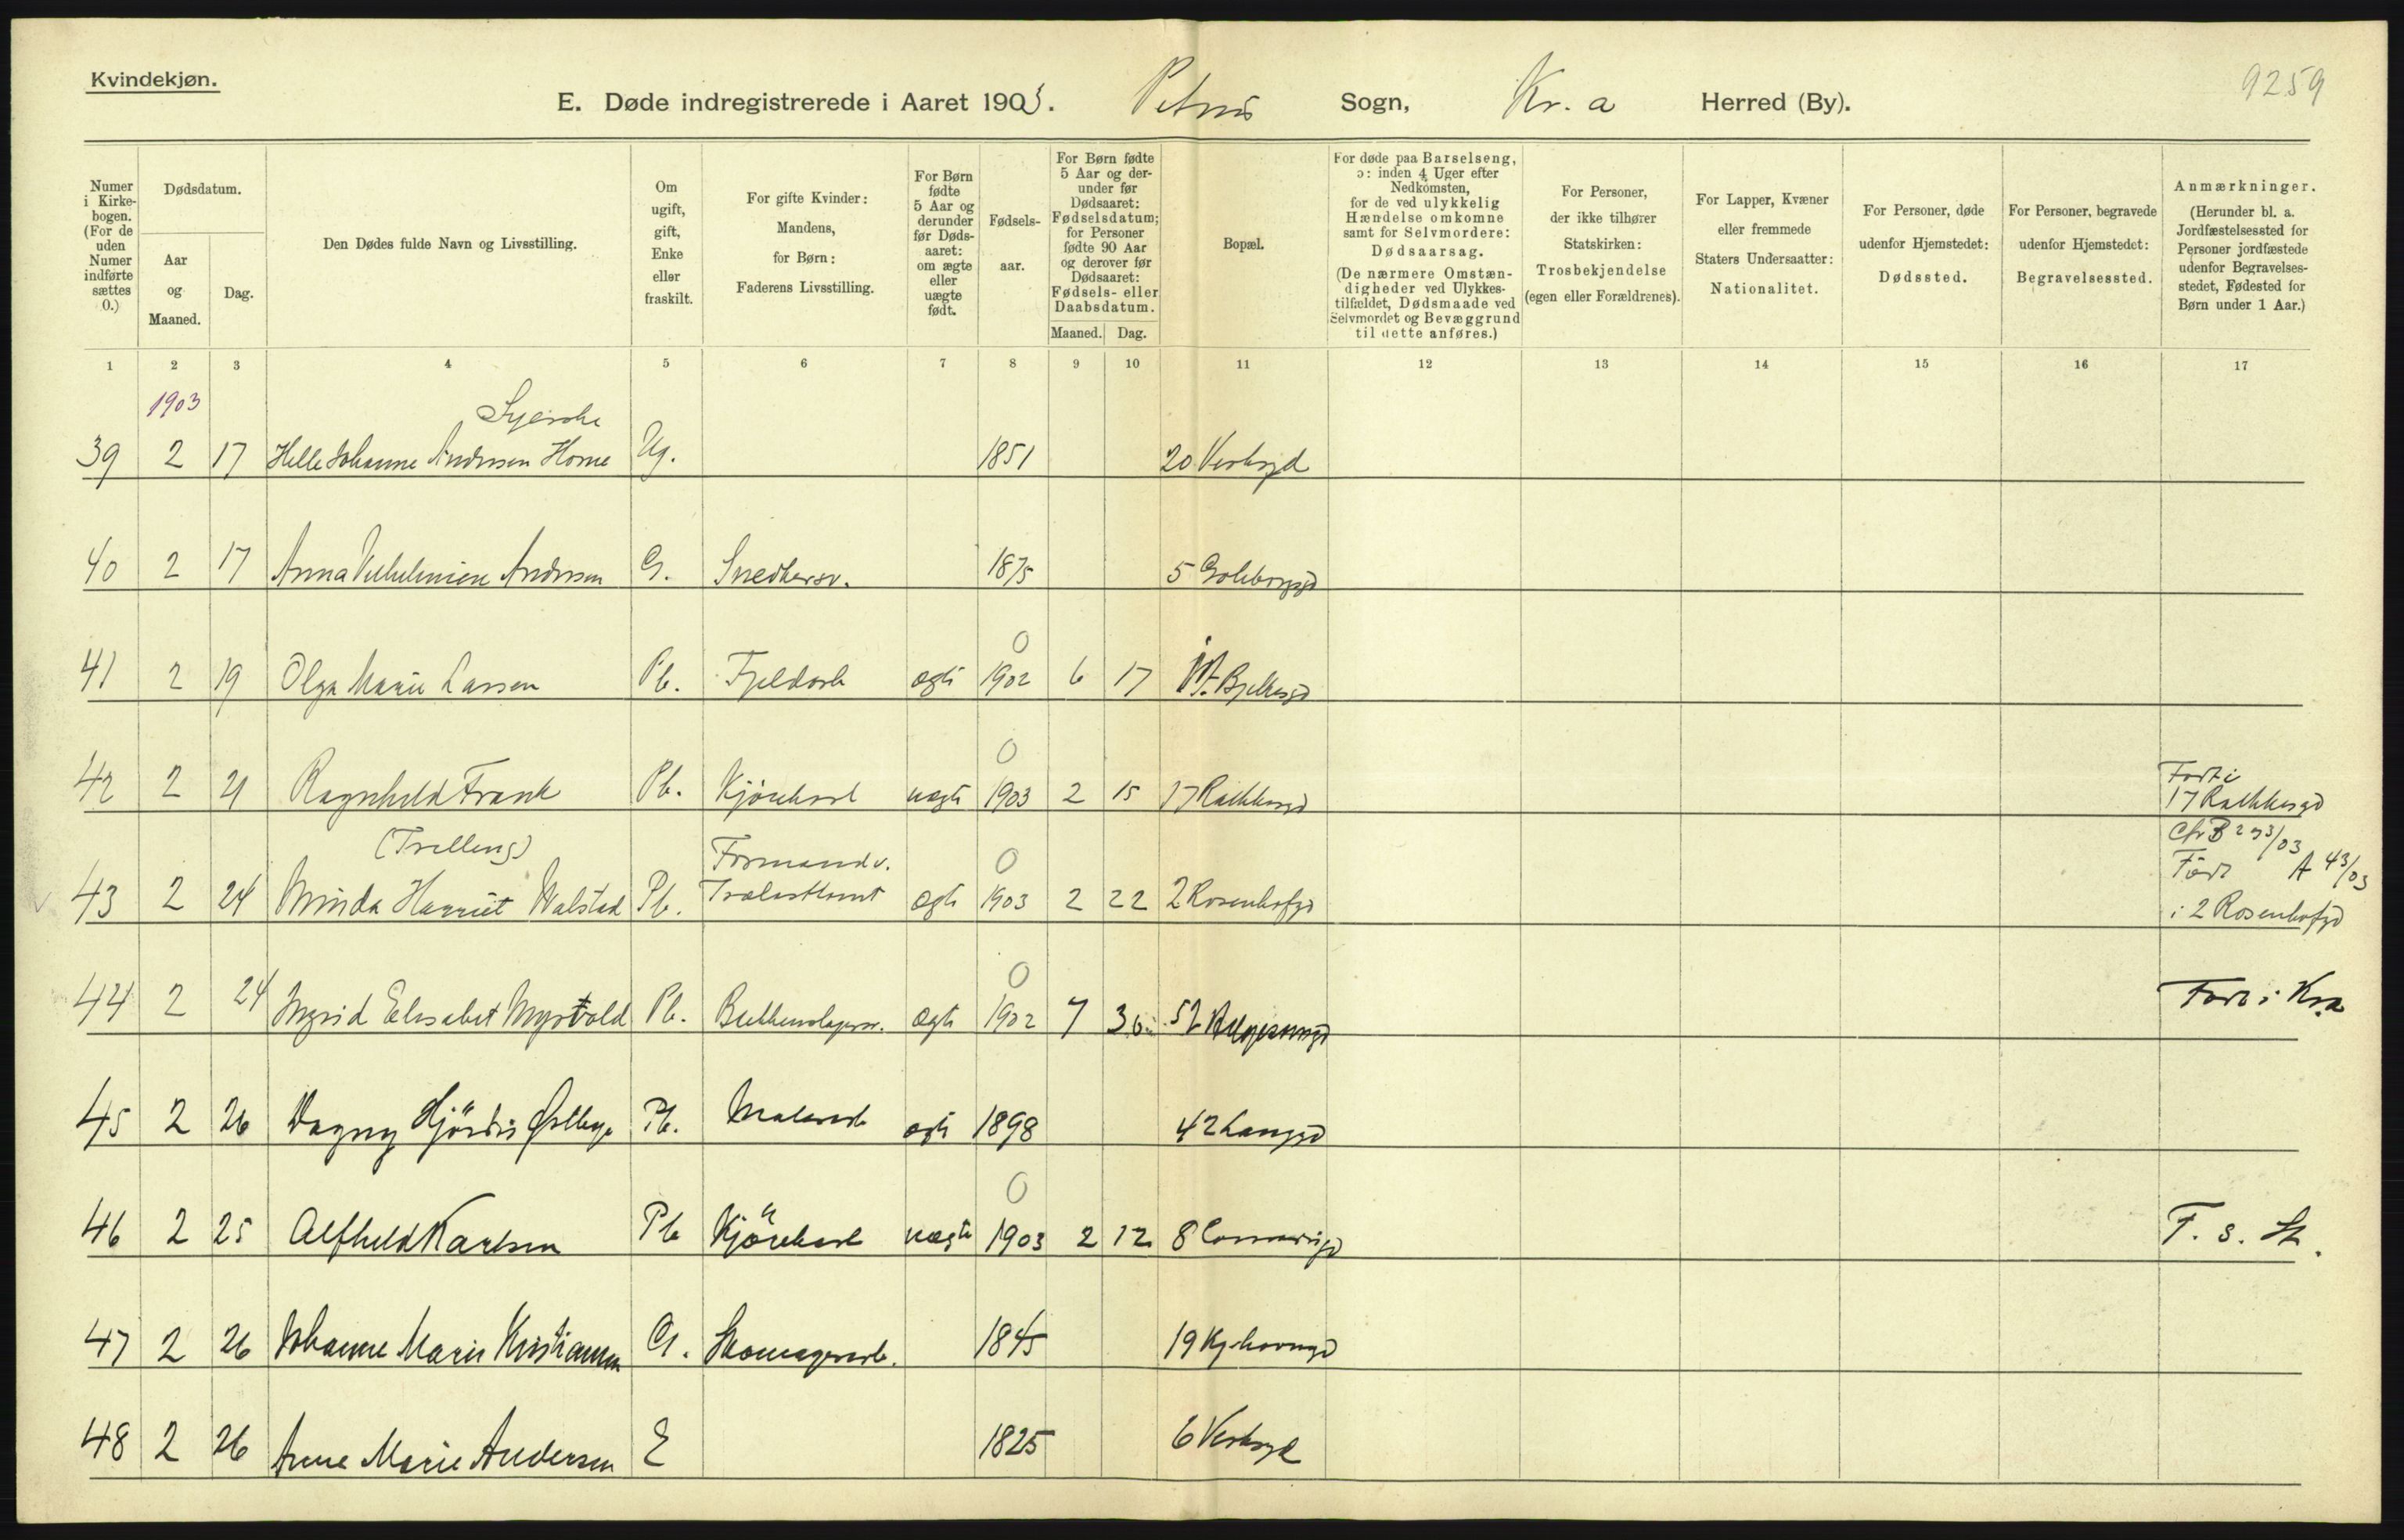 Kvindekjøn.
9259
E. Døde indregistrerede i Aaret 1903. Petrus Sogn, Kr.a Herred (By).
Numer i Kirkebogen. (For de uden Numer indførte sættes 0.)
Dødsdatum.
Aar og Maaned.
Dag.
Den Dødes fulde Navn og Livsstilling.
Om ugift, gift, Enke eller fraskilt.
For gifte Kvinder: Mandens, for Børn: Faderens Livsstilling.
For Børn fødte 5 Aar og derunder før Dødsaaret: om ægte eller uægte født.
Fødselsaar.
For Børn fødte 5 Aar og derunder før Dødsaaret: Fødselsdatum; for Personer fødte 90 Aar og derover før Dødsaaret: Fødsels- eller Daabsdatum.
Maaned. Dag.
Bopæl.
For døde paa Barselseng, ɔ: inden 4 Uger efter Nedkomsten, for de ved ulykkelig Hændelse omkomne samt for Selvmordere: Dødsaarsag. (De nærmere Omstændigheder ved Ulykkestilfældet, Dødsmaade ved Selvmordet og Bevæggrund til dette anføres.)
For Personer, der ikke tilhører Statskirken: Trosbekjendelse (egen eller Forældrenes).
For Lapper, Kvæner eller fremmede Staters Undersaatter: Nationalitet.
For Personer, døde udenfor Hjemstedet: Dødssted.
For Personer, begravede udenfor Hjemstedet: Begravelsessted.
Anmærkninger. (Herunder bl. a. Jordfæstelsessted for Personer jordfæstede udenfor Begravelsesstedet, Fødested for Børn under 1 Aar.)
1 2 3 4 5 6 7 8 9 10 11 12 13 14 15 16 17
1903
Syerske
39 2 17 Helle Johanne Andersen Horne Ug. 1851 20 Verksgd
40 2 17 Anna Vilhelmine Andersen G. Snedkersv. 1875 5 Gøteborggd
0
41 2 19 Olga Marie Larsen Pb. Fjeldarb ægte 1902 6 17 Bjelkesgd
0
42 2 21 Ragnhild Frank Pb. Kjørekarl uægte 1903 2 15 17 Rathkesgd Født i 17 Rathkesgd
(Tvilling) Formand v. 0 Cfr B 293/03
43 2 24 Minda Harriet Walstad Pb. Trælasttomt ægte 1903 2 22 2 Rosenhofgd Født A 43/03 i 2 Rosenhofgd
0
44 2 24 Ingrid Elisabet Myrvold Pb. ægte 1902 7 30 52 Født i Kra
45 2 26 Dagny Hjördis Østbye Pb. Malersv ægte 1898 42 Langgd
0
46 2 25 Alfhild Karlsen Pb Kjörekarl uægte 1903 2 12 8 F. s. St.
47 2 26 Johanne Marie Kristiansen G. Skomagerarb. 1845 19 Kjøbhavnsgd
48 2 26 Anne Marie Andersen E 1825 6 Verksgd